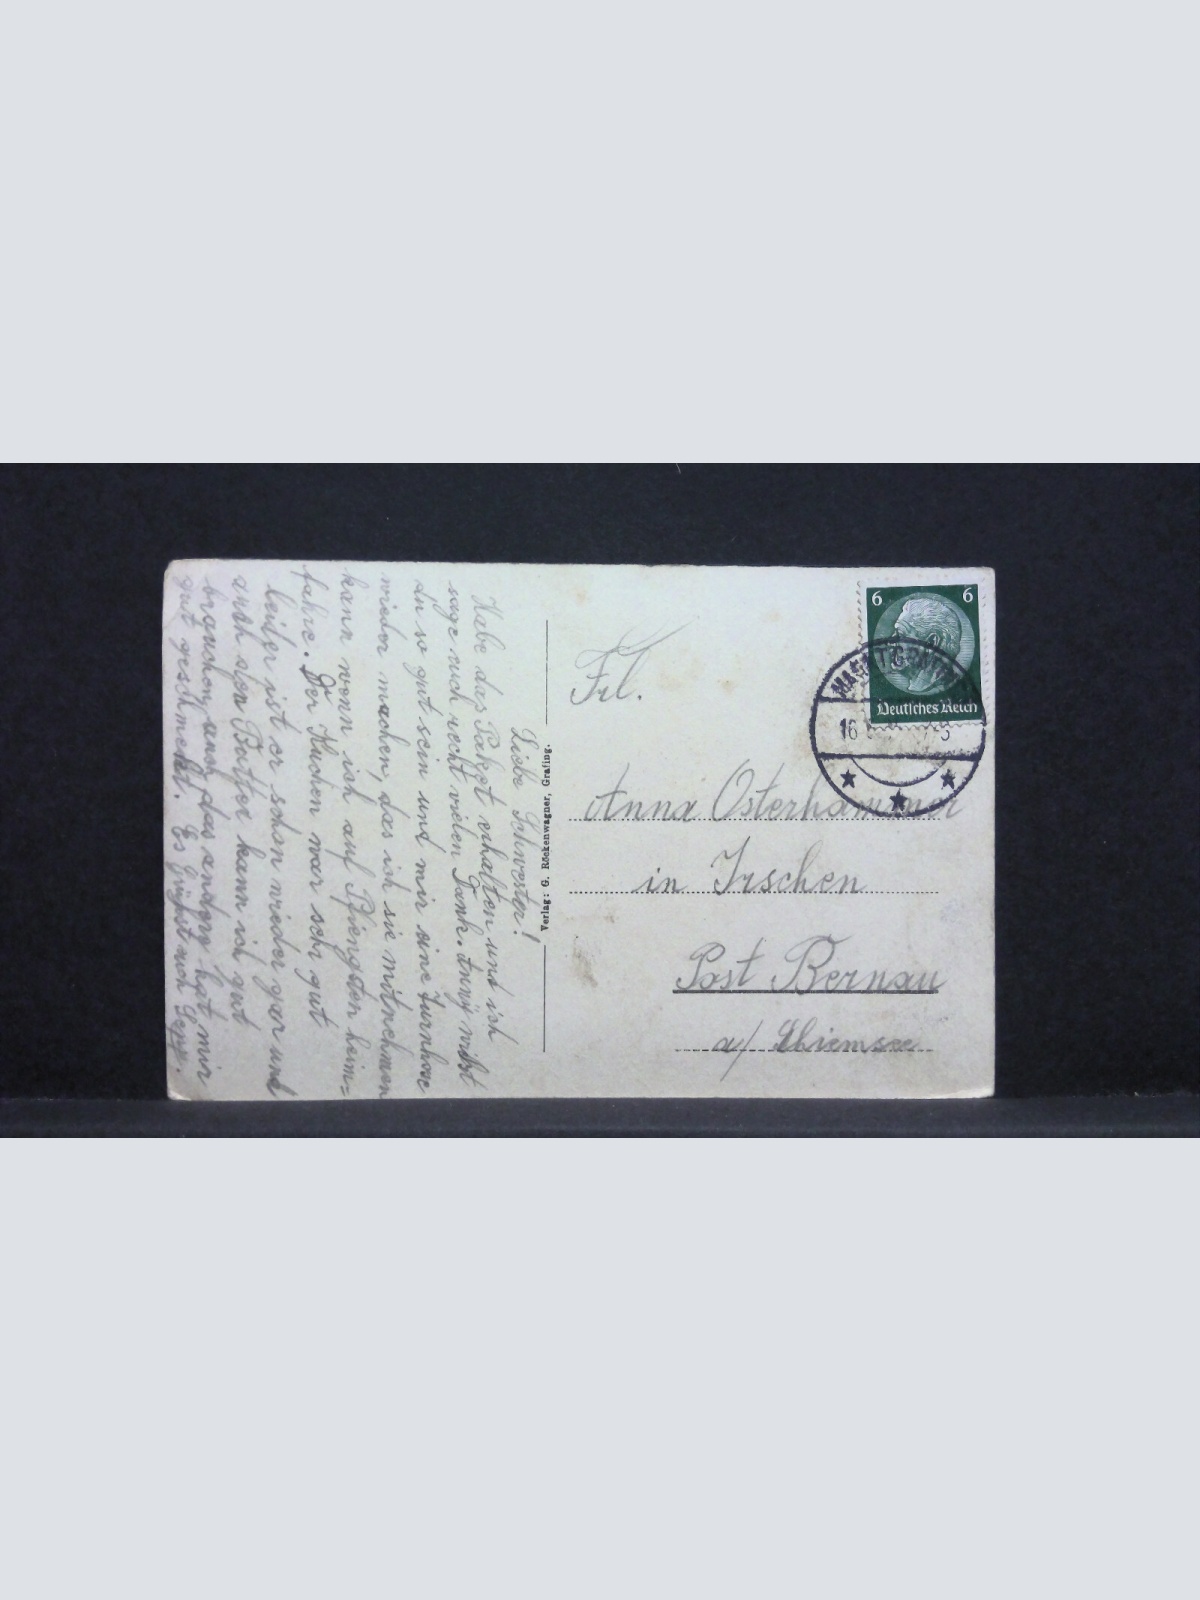 Liebe Schwester!
Habe das Paket erhalten und ich
sage euch recht vielen Dank. Anni willst
du so gut sein und mir eine Turnhose
wieder machen, das ich sie mitnehmen
kann wenn ich auf Pfingsten heim=
fahre. Der Kuchen war sehr gut
leider ist er schon wieder gar und
auch den Botter kann ich gut
brauchen, auch das andere hat mir
gut geschmeckt. Es grüßt euch Sepp.
Verlag: G. Röckenwagner, Grafing.
6 6
Deutsches Reich
MARKT
16
Frl.
Anna Osterhammer
in Irschen
Post Bernau
a/ Chiemsee